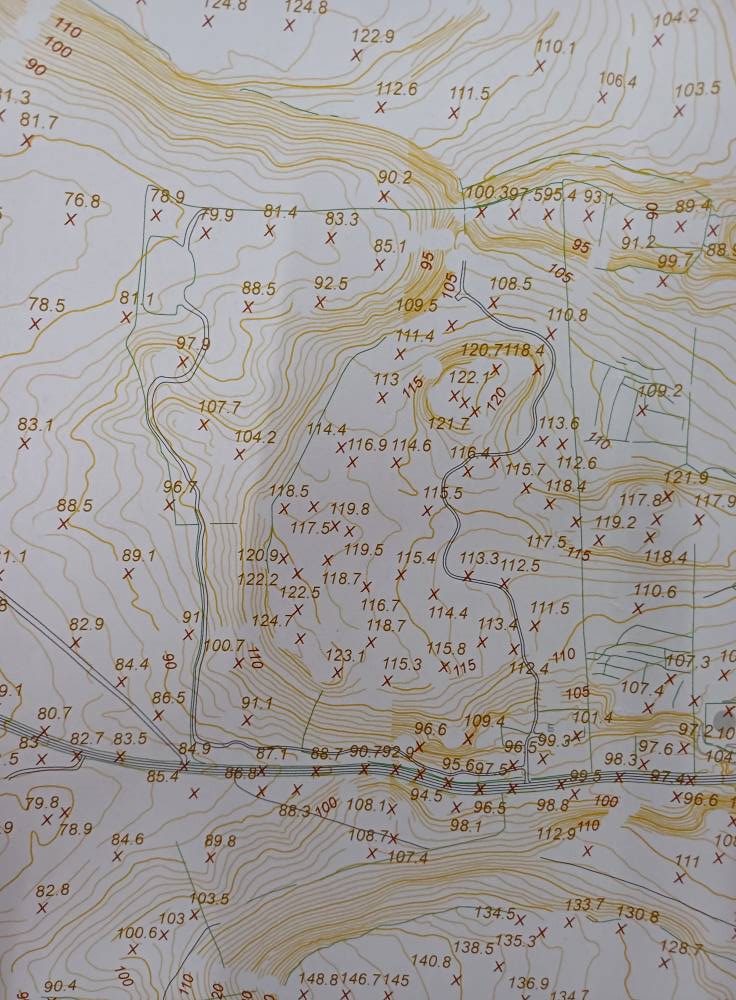 124.8
124.8
104.2
110
122.9
110.1
100
90
112.6
111.5
106.4
103.5
81.7
90.2
76.8
78.9
79.9
81.4
83.3
100.3
97.5
95.4
93.1
90
89.4
91.2
88.9
85.1
95
95
105
99.7
88.5
92.5
105
108.5
78.5
81.1
109.5
110.8
97.9
111.4
120.7
118.4
113
115
122.1
120
109.2
107.7
121.7
83.1
104.2
114.4
116.9
114.6
113.6
110
116.4
115.7
112.6
96.7
118.5
119.8
115.5
118.4
121.9
117.8
117.9
88.5
117.5
119.2
117.5
115
118.4
89.1
120.9
119.5
115.4
113.3
112.5
122.2
118.7
122.5
116.7
114.4
110.6
82.9
91
124.7
118.7
113.4
111.5
90
100.7
110
123.1
115.8
115
110
84.4
115.3
112.4
107.3
86.5
91.1
105
107.4
80.7
96.6
109.4
101.4
83
82.7
83.5
84.9
87.1
88.7
90.7
92.9
96.5
99.3
97.6
97.2
85.4
86.8
95.6
97.5
98.3
99.5
97.4
79.8
78.9
88.3
100
108.1
94.5
96.5
98.8
100
96.6
98.1
110
84.6
89.8
108.7
107.4
112.9
111
82.8
103.5
103
100.6
134.5
133.7
130.8
135.3
138.5
128.7
140.8
100
110
90.4
148.8
146.7
145
136.9
134.7